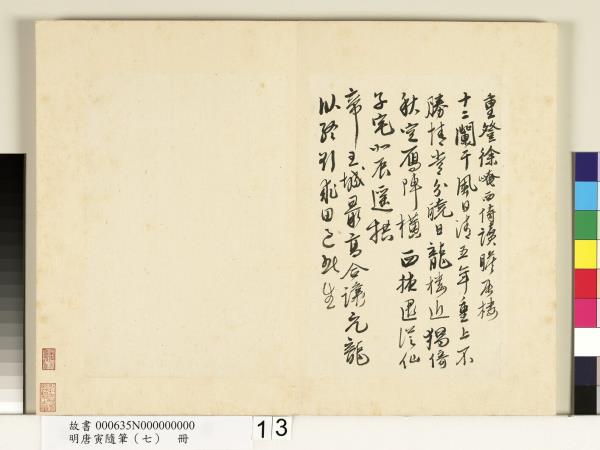 重登徐崦西侍讀瞻辰樓
十二闌干風日清五年重上不
勝情當分曉日龍樓近獨倚
秋空鴈陣橫西掖退從仙
子宅北辰遙拱
帝王城最高合讓元龍
臥 求田已此生
故書 000635N000000000
明唐寅隨筆（七） 冊
13